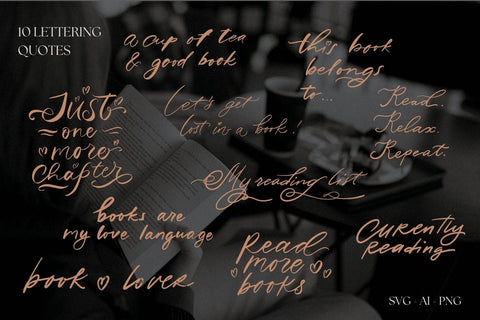 10 LETTERING
QUOTES
a cup of tea
& good book
this book
belongs
to...
Just
one
more
chapter
Let's get
lost in a book!
Read.
Relax.
Repeat.
My reading list
books are
my love language
Curently
reading
book lover
Read
more
books
SVG - AI - PNG